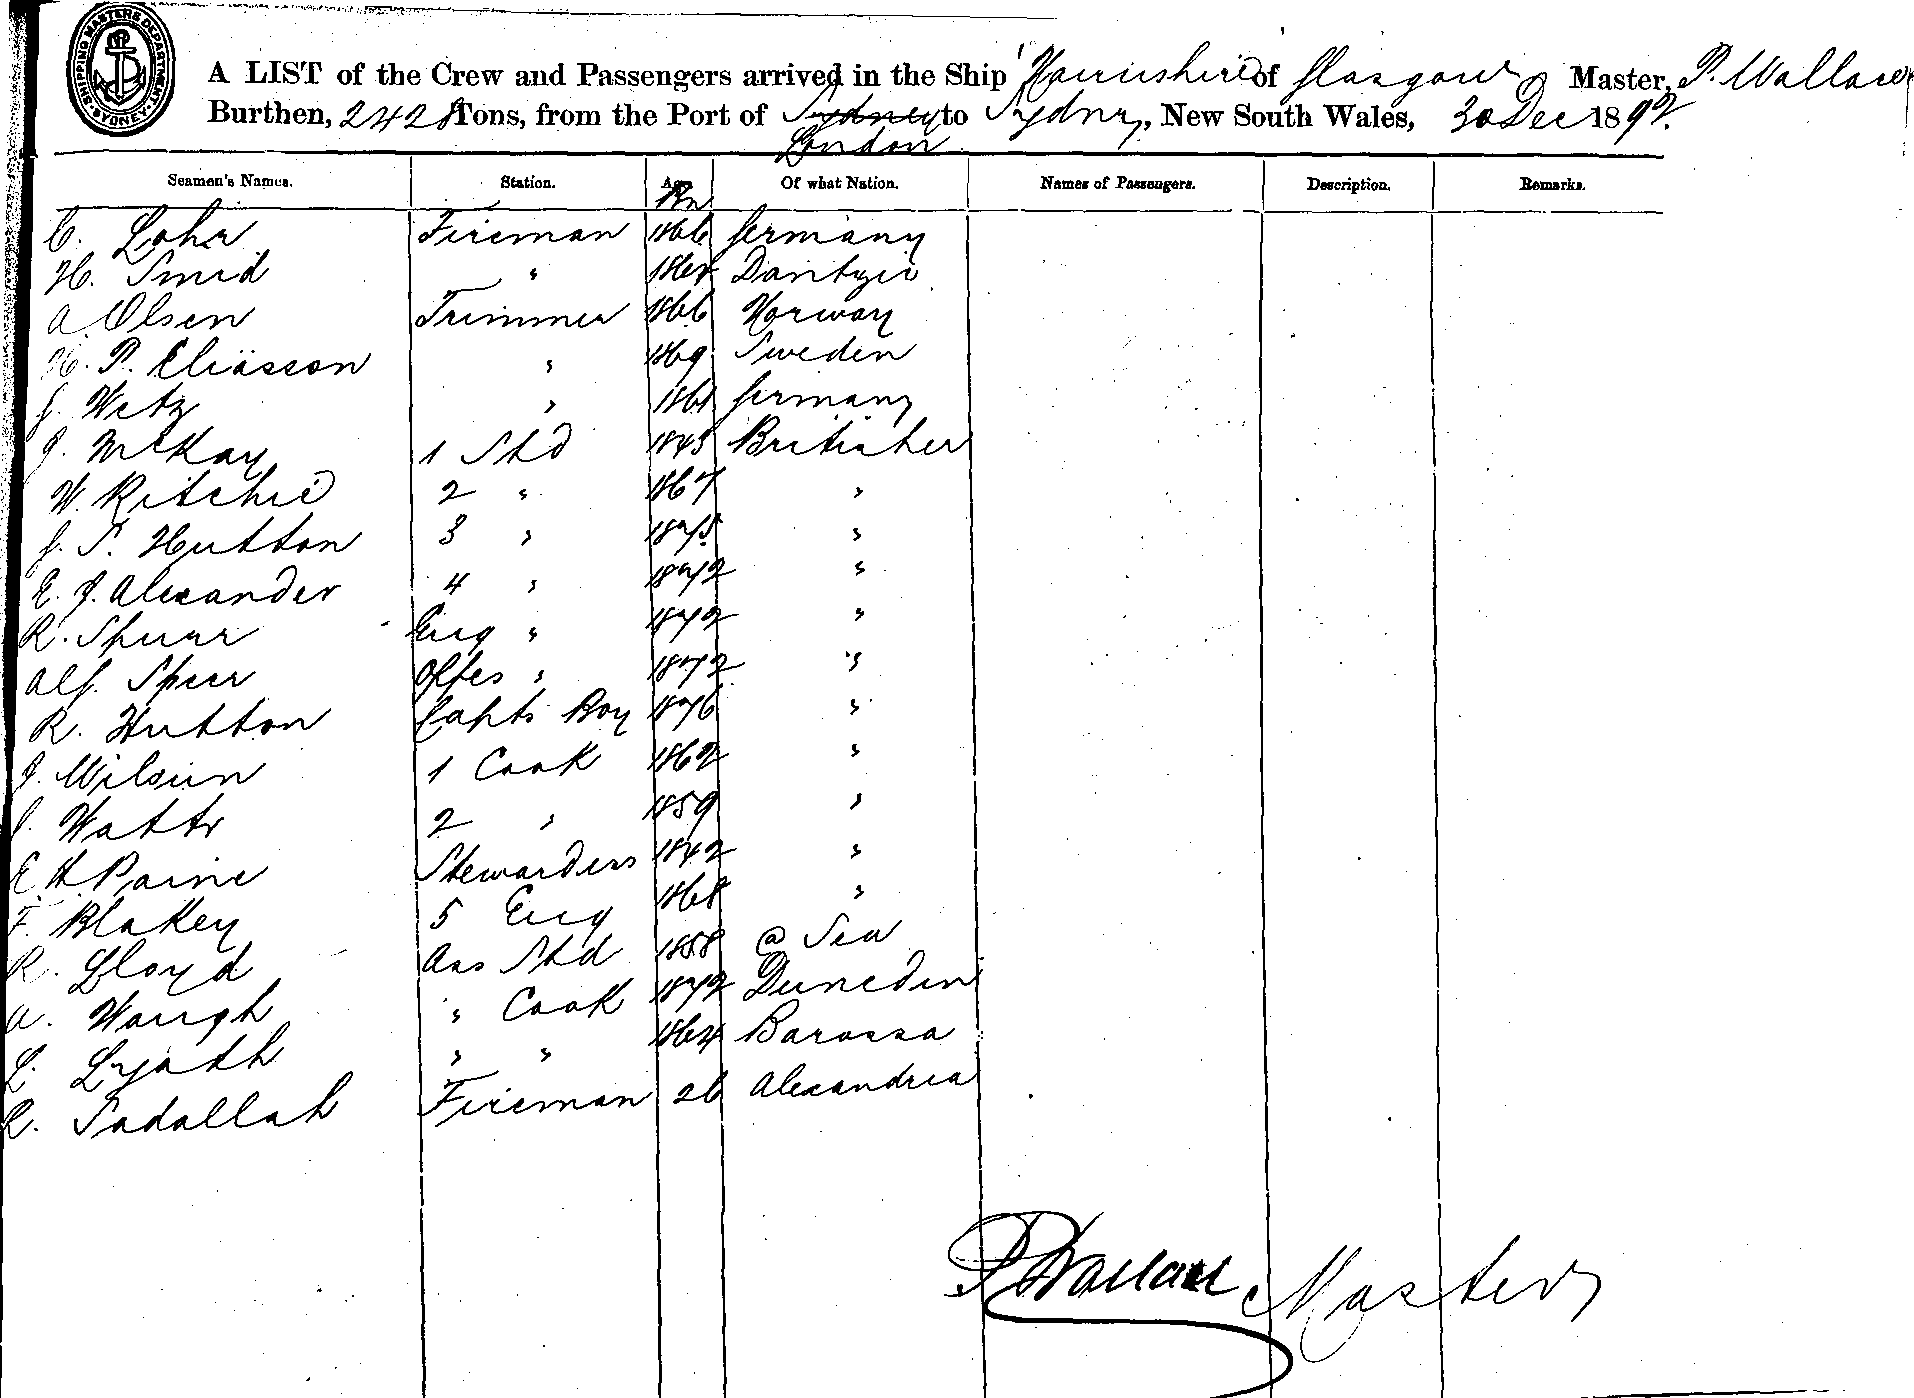 SHIPPING MASTERS DEPARTMENT SYDNEY
A LIST of the Crew and Passengers arrived in the Ship of Glasgow Master, P. Wallace
Burthen, 2428 Tons, from the Port of Sydney to Sydney, New South Wales, 30 Dec 1892.
London
Seamen's Names. Station. Age Of what Nation. Names of Passengers. Description. Remarks.
Bn
C. Lohr Fireman 1866 Germany
H. Smid " Dantzic
A Olsen Trimmer 1866 Norway
H. P. Eliasson " 1869 Sweden
J. Wetz " 1861 Germany
J. McKay 1 Std 1843 Britisher
W. Ritchie 2 " 1867 "
J. S. Hutton 3 " 1875 "
E. J. Alexander 4 " 1872 "
R. Spurr Eng " 1872 "
Alf. Spurr Offes " 1872 "
R. Hutton Capts Boy 1876 "
J. Wilson 1 Cook 1862 "
J. Watts 2 " 1859 "
E H Paine Stewardess 1842 "
F. Blakey 5 Eng 1868 "
R. Lloyd Ass Std 1858 @ Sea
A. Waugh " Cook 1872 Dunedin
L. " " 1864 Barossa
R. Sadallah Fireman 26 Alexandria
P Wallace Master